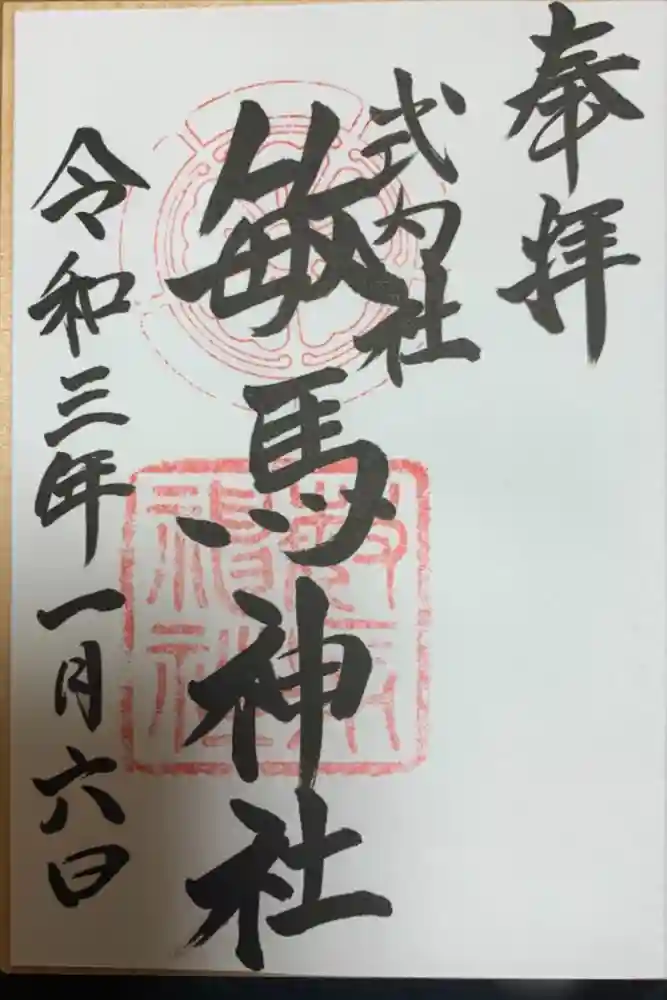 奉拝
式内社
敏馬神社
令和三年一月六日